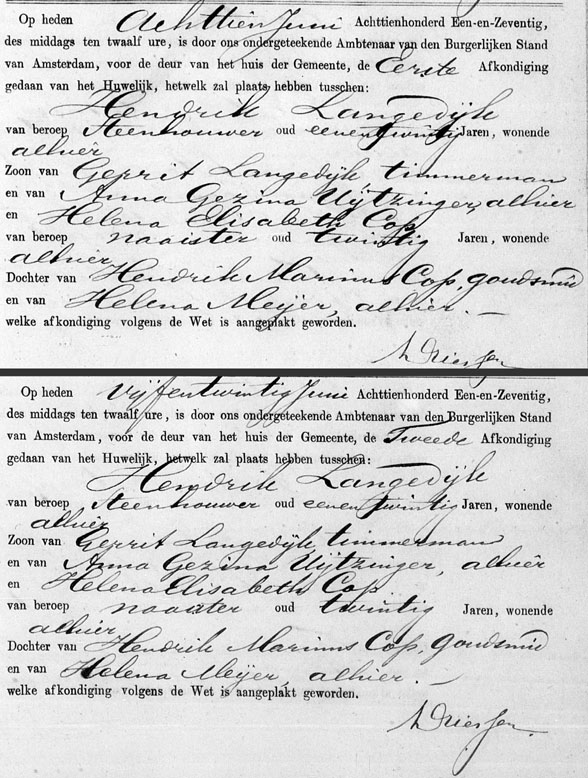 Op heden Achttien Juni Achttienhonderd Een-en-Zeventig,
des middags ten twaalf ure, is door ons ondergeteekende Ambtenaar van den Burgerlijken Stand
van Amsterdam, voor de deur van het huis der Gemeente, de Eerste Afkondiging
gedaan van het Huwelijk, hetwelk zal plaats hebben tusschen:
Hendrik Langedijk
van beroep Steenhouwer oud eenentwintig Jaren, wonende
alhier
Zoon van Gerrit Langedijk timmerman
en van Anna Gezina Uijtzinger, alhier
en Helena Elisabeth Cop
van beroep naaister oud twintig Jaren, wonende
alhier,
Dochter van Hendrik Marinus Cop, goudsmid
en van Helena Meijer, alhier. —
welke afkondiging volgens de Wet is aangeplakt geworden.
Op heden Vijfentwintig Juni Achttienhonderd Een-en-Zeventig,
des middags ten twaalf ure, is door ons ondergeteekende Ambtenaar van den Burgerlijken Stand
van Amsterdam, voor de deur van het huis der Gemeente, de Tweede Afkondiging
gedaan van het Huwelijk, hetwelk zal plaats hebben tusschen:
Hendrik Langedijk
van beroep Steenhouwer oud eenentwintig Jaren, wonende
alhier
Zoon van Gerrit Langedijk timmerman
en van Anna Gezina Uijtzinger, alhier
en Helena Elisabeth Cop
van beroep naaister oud twintig Jaren, wonende
alhier,
Dochter van Hendrik Marinus Cop, goudsmid
en van Helena Meijer, alhier. —
welke afkondiging volgens de Wet is aangeplakt geworden.